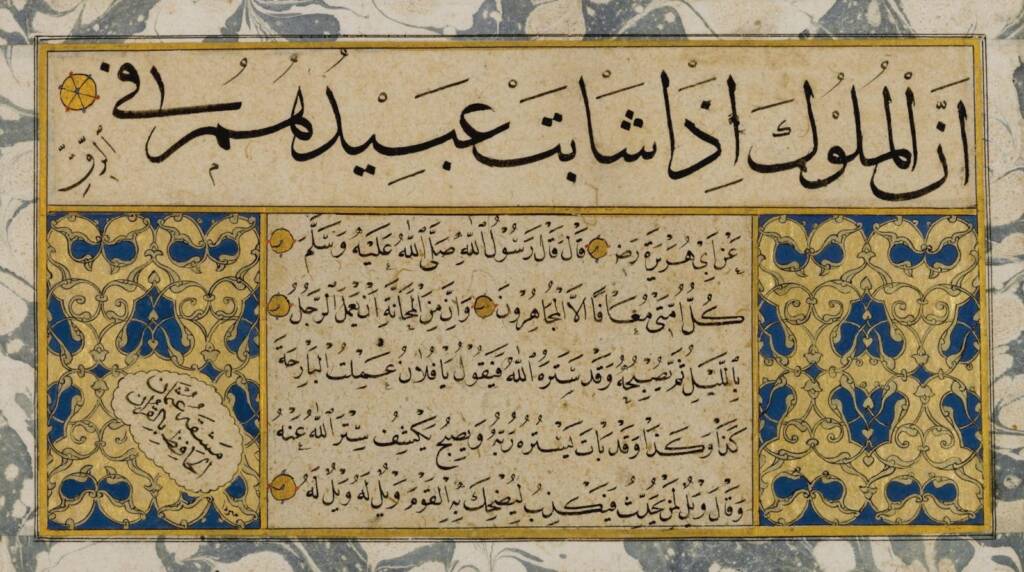 اِنَّ الْمُلُوكَ اِذَا شَابَتْ عَبِيْدُهُمُ فى
الرِّقِّ
عَنْ اَبِي هُرَيْرَةَ رَضِ قَالَ قَالَ رَسُولُ اللّٰهِ صَلَّى اللّٰهُ عَلَيْهِ وَسَلَّمَ
كُلُّ اُمَّتِي مُعَافًا اِلَّا الْمُجَاهِرُونَ وَاِنَّ مِنَ الْمَجَانَةِ اَنْ يَعْمَلَ الرَّجُلُ
بِاللَّيْلِ ثُمَّ يُصْبِحُ وَقَدْ سَتَرَهُ اللّٰهُ فَيَقُولُ يَا فُلَانُ عَمِلْتُ الْبَارِحَةَ
كَذَا وَكَذَا وَقَدْ بَاتَ يَسْتُرُهُ رَبُّهُ وَيُصْبِحُ يَكْشِفُ سِتْرَ اللّٰهِ عَنْهُ
وَقَالَ وَيْلٌ لِمَنْ يُحَدِّثُ فَيَكْذِبُ لِيُضْحِكَ بِهِ الْقَوْمَ وَيْلٌ لَهُ وَيْلٌ لَهُ
مشقه عثمان
الحافظ بالقرآن